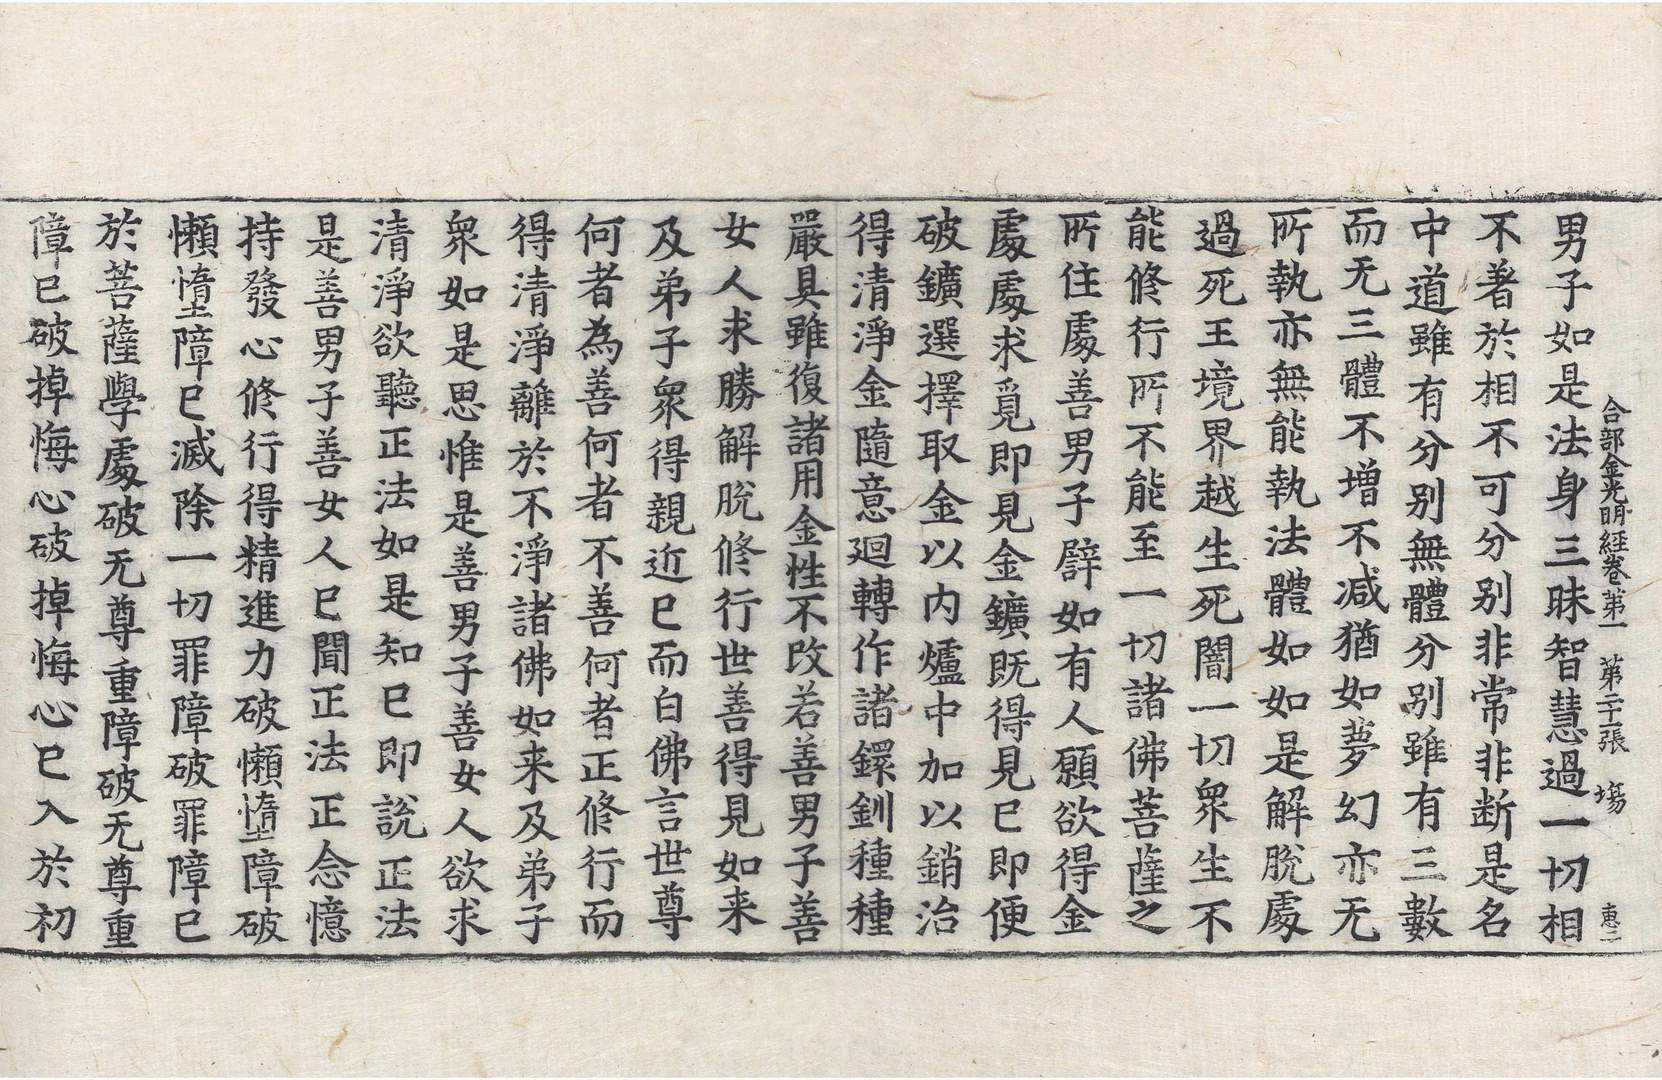 合部金光明經卷第一 第二十張 塲 惠二
男子如是法身三昧智慧過一切相
不著於相不可分别非常非断是名
中道雖有分别無體分别雖有三數
而无三體不增不减猶如夢幻亦无
所執亦無能執法體如如是解脫處
過死王境界越生死闇一切衆生不
能修行所不能至一切諸佛菩薩之
所住處善男子譬如有人願欲得金
處處求覓即見金鑛既得見已即便
破鑛選擇取金以内爐中加以銷治
得清淨金隨意廻轉作諸鐶釧種種
嚴具雖復諸用金性不改若善男子善
女人求勝解脫修行世善得見如来
及弟子衆得親近已而白佛言世尊
何者為善何者不善何者正修行而
得清淨離於不淨諸佛如来及弟子
衆如是思惟是善男子善女人欲求
清淨欲聽正法如是知已即說正法
是善男子善女人已聞正法正念憶
持發心修行得精進力破懶惰障破
懶惰障已滅除一切罪障破罪障已
於菩薩學處破无尊重障破无尊重
障已破掉悔心破掉悔心已入於初